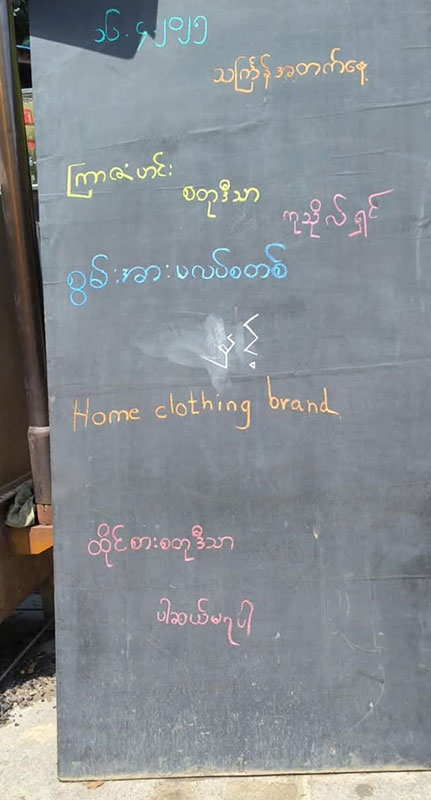 ၁၆.၄.၂၀၂၅
သင်္ကြန်အတက်နေ့
ကြာဇံဟင်း
စတုဒီသာ
ကုသိုလ်ရှင်
စွမ်းအားမလပ်စတစ်
နှင့်
Home clothing brand
ထိုင်စားစတုဒီသာ
ပါဆယ်မရပါ